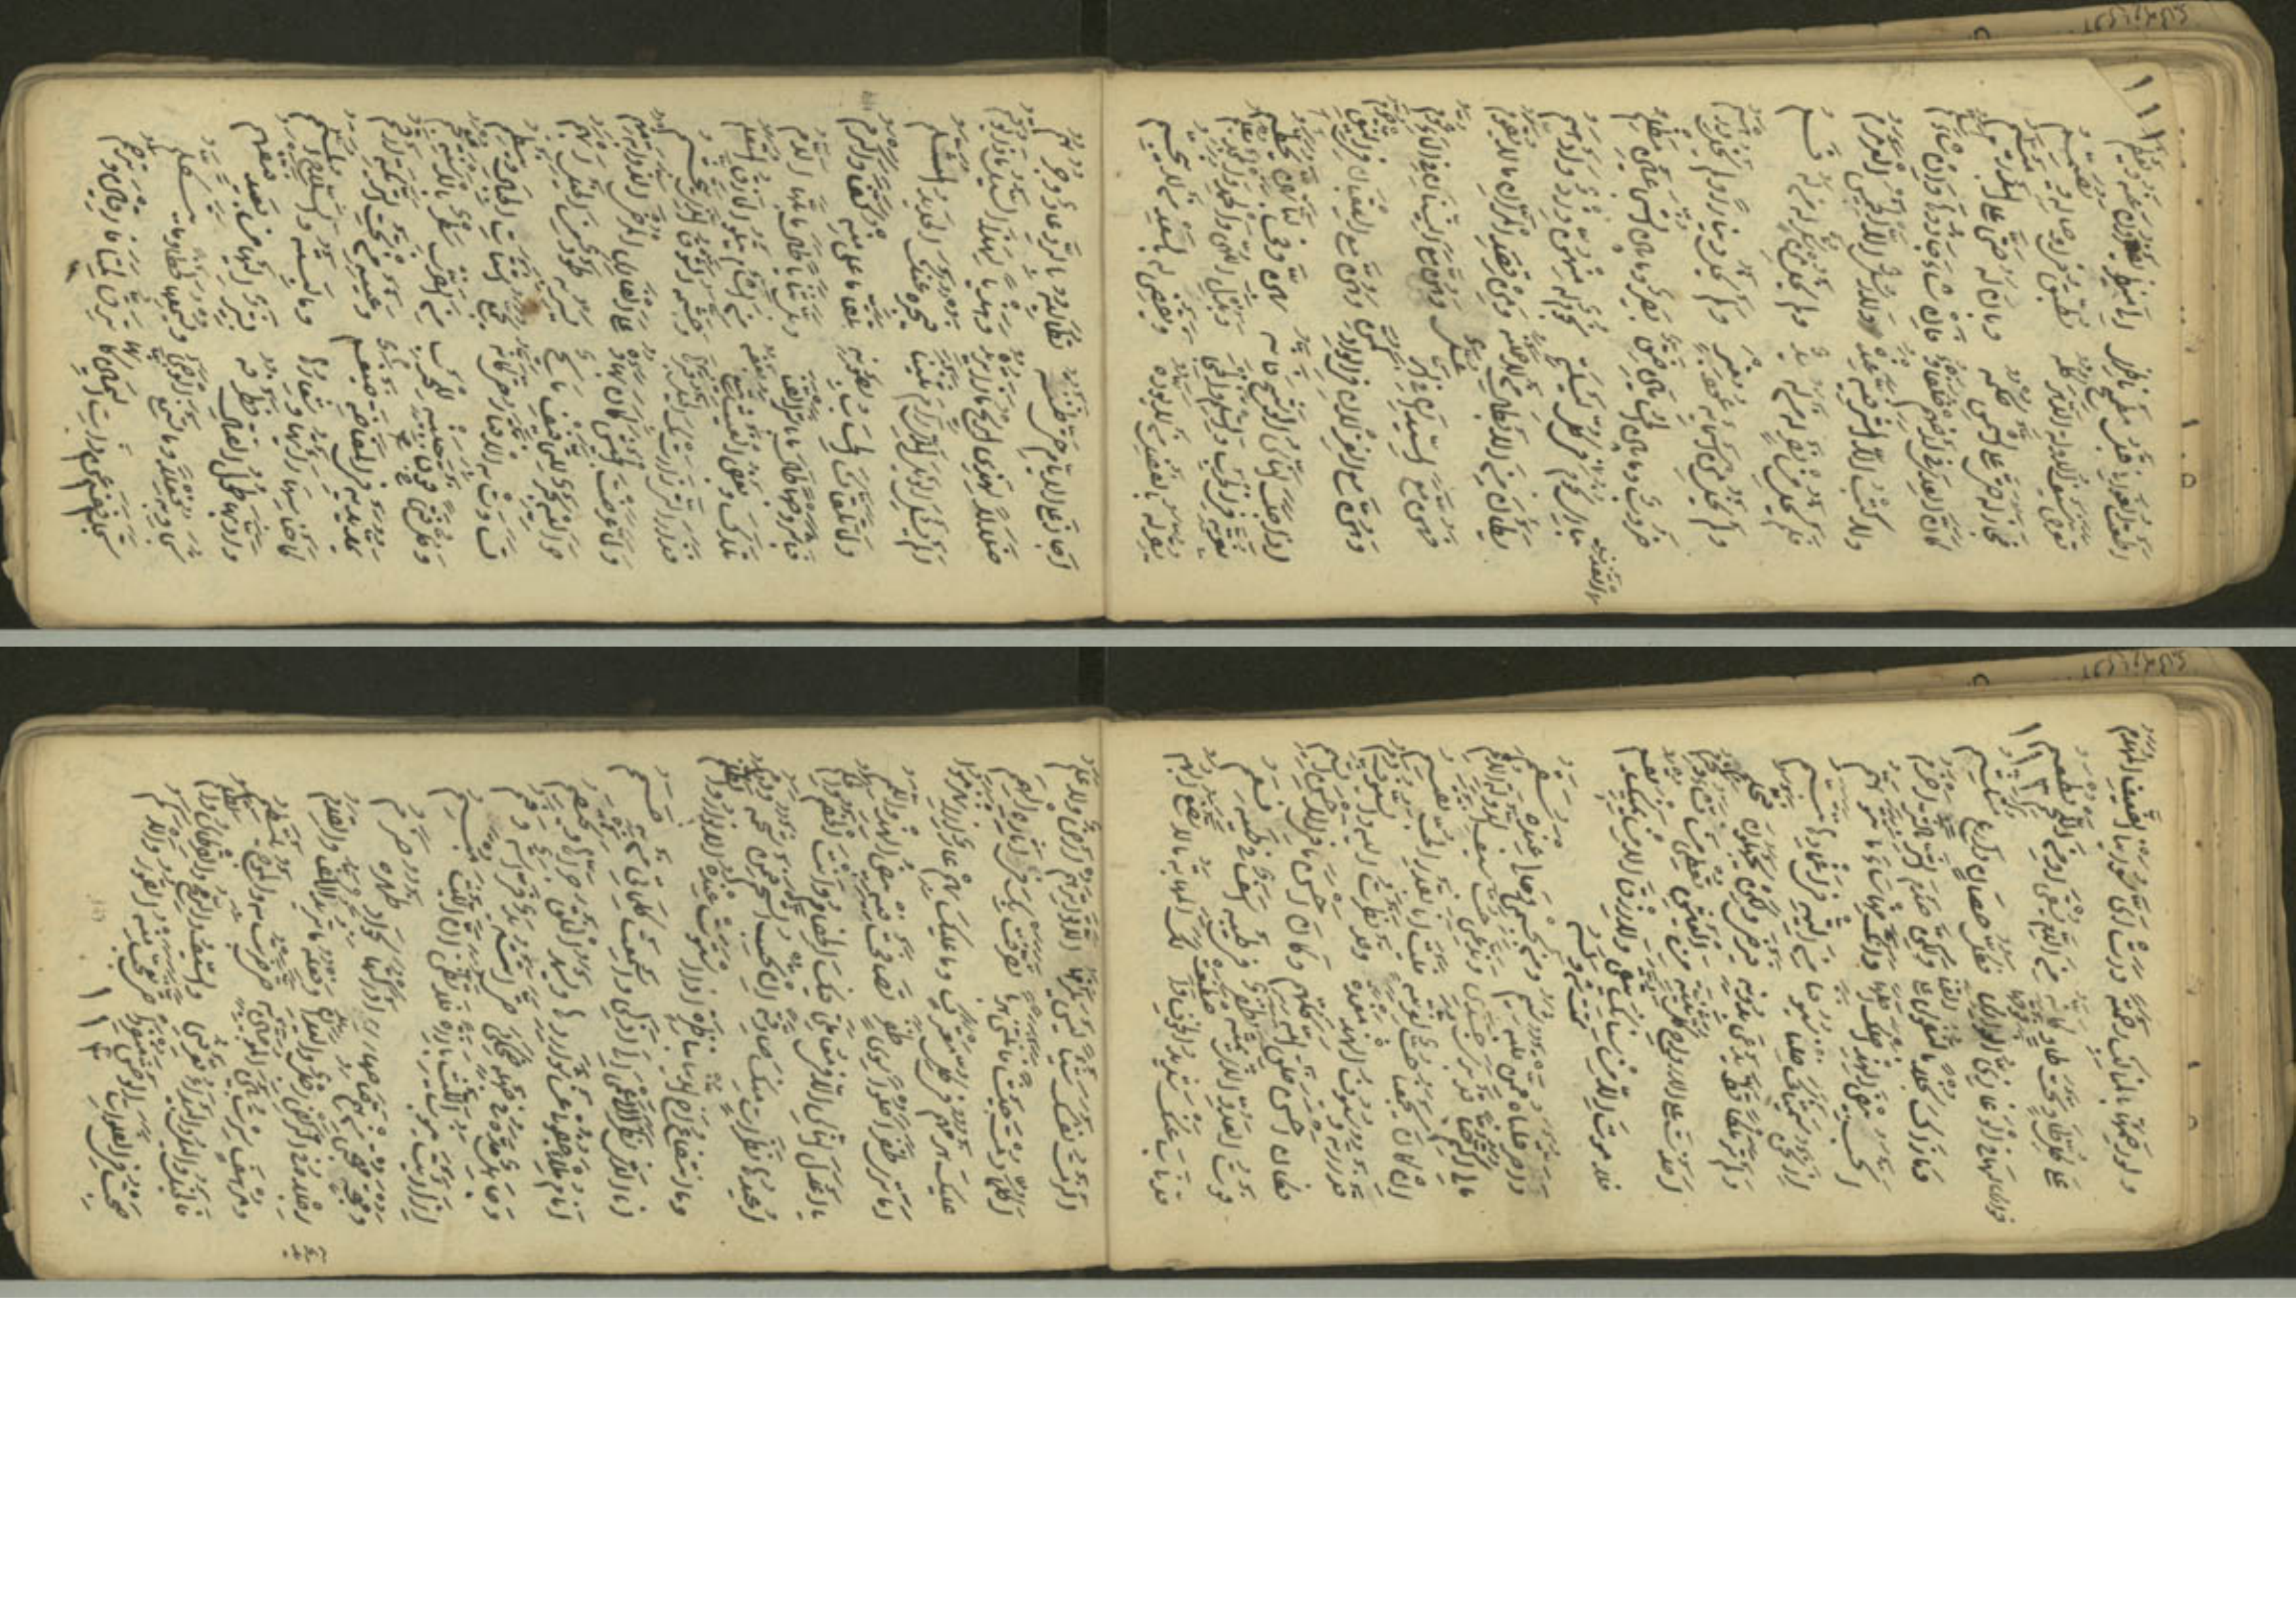 ١١١
اطعت الغواني قبل مطمح ناظري الى منظر يصغرن عنه ويعظم
تعرض سيف الدولة الدهر كله يطبق في اوصاله ويصمم
فجاز له حتى على الشمس حكمه وبان له حتى على البدر ميسم
كأن العدى في ارضهم خلفاؤه فان شاء حازوها وان شاء سلموا
ولا كتب الا المشرفية عنده ولا رسل الا الخميس العرمرم
فلم يخل من نصر له من له يد ولم يخل من شكر له من له فم
ولم يخل من اسمائه عود منبر ولم يخل دينار ولم يخل درهم
ضروب وما بين الحسامين ضيق بصير وما بين الشجاعين مظلم
تباري نجوم القذف في كل ليلة نجوم له منهن ورد وادهم
يطأن من الابطال من لا حملنه ومن قصد المران ما لا يقوم
فهن مع السيدان في البر عسل وهن مع النينان في الماء عوم
وهن مع الغزلان في الواد كمن وهن مع العقبان في النيق حوم
اذا جلب الناس الوشيج فانه بهن وفي لباتهن يحطم
بغرته في الحرب والسلم والحجى وبذل اللهى والحمد والمجد معلم
يقر له بالفضل من لا يوده ويقضي له بالسعد من لا ينجم
اجار على الايام حتى ظننته تطالبه بالرد عاد وجرهم
ضلالا لهذي الريح ماذا تريده وهديا لهذا السيل ماذا يؤمم
الم يسأل الوبل الذي رام ثنينا فيخبره عنك الحديد المثلم
ولما تلقاك السحاب بصوبه تلقاه اعلى منه كعبا واكرم
فباشر وجها طالما باشر القنا وبل ثيابا طالما بلها الدم
تلاك وبعض الغيث يتبع بعضه من الشام يتلو الحاذق المتعلم
فزار التي زارت بك الخيل قبرها وجشمه الشوق الذي تتجشم
ولما عرضت الجيش كان بهاؤه على الفارس المرخى الذؤابة منهم
حواليه بحر للتجافيف مائج يسير به طود من الخيل ايهم
تساوت به الاقطار حتى كأنه يجمع اشتات الجبال وينظم
وكل فتى للحرب فوق جبينه من الضرب سطر بالاسنة معجم
يمد يديه في المفاضة ضيغم وعينيه من تحت التريكة ارقم
كاجناسها راياتها وشعارها وما لبسته والسلاح المسمم
وادبها طول القتال فطرفه يشير اليها من بعيد فتفهم
تجاوبه فعلا وما تسمع الوحى ويسمعها لحظا وما يتكلم
تجانف عن ذات اليمين كأنها ترق لميافارقين وترحم
ولو زحمتها بالمناكب زحمة درت اي سورينا الضعيف المهدم
١١٢
على كل طاو تحت طاو كأنه من الدم يسقى او من اللحم يطعم
لها في الوغى زي الفوارس فوقها فكل حصان دارع متلثم
وما ذاك بخلا بالنفوس على القنا ولكن صدم الشر بالشر احزم
اتحسب بيض الهند اصلك اصلها وانك منها ساء ما تتوهم
اذا نحن سميناك خلنا سيوفنا من التيه في اغمادها تتبسم
ولم نر ملكا قط يدعى بدونه فيرضى ولكن يجهلون وتحلم
اخذت على الارواح كل ثنية من العيش تعطي من تشاء وتحرم
فلا موت الا من سنانك يتقى ولا رزق الا من يمينك يقسم
واحر قلباه ممن قلبه شبم ومن بجسمي وحالي عنده سقم
مالي اكتم حبا قد برى جسدي وتدعي حب سيف الدولة الامم
ان كان يجمعنا حب لغرته فليت انا بقدر الحب نقتسم
قد زرته وسيوف الهند مغمدة وقد نظرت اليه والسيوف دم
فكان احسن خلق الله كلهم وكان احسن ما في الاحسن الشيم
فوت العدو الذي يممته ظفر في طيه اسف في طيه نعم
قد ناب عنك شديد الخوف واصطنعت لك المهابة ما لا تصنع البهم
الزمت نفسك شيئا ليس يلزمها ان لا يواريهم ارض ولا علم
اكلما رمت جيشا فانثنى هربا تصرفت بك في آثاره الهمم
عليك هزمهم في كل معترك وما عليك بهم عار اذا انهزموا
اما ترى ظفرا حلوا سوى ظفر تصافحت فيه بيض الهند واللمم
يا اعدل الناس الا في معاملتي فيك الخصام وانت الخصم والحكم
اعيذها نظرات منك صادقة ان تحسب الشحم فيمن شحمه ورم
وما انتفاع اخي الدنيا بناظره اذا استوت عنده الانوار والظلم
انا الذي نظر الاعمى الى ادبي واسمعت كلماتي من به صمم
انام ملء جفوني عن شواردها ويسهر الخلق جراها ويختصم
وجاهل مده في جهله ضحكي حتى اتته يد فراسة وفم
اذا رأيت نيوب الليث بارزة فلا تظنن ان الليث يبتسم
ومهجة مهجتي من هم صاحبها ادركتها بجواد ظهره حرم
رجلاه في الركض رجل واليدان يد وفعله ما تريد الكف والقدم
ومرهف سرت بين الجحفلين به حتى ضربت وموج الموت يلتطم
فالخيل والليل والبيداء تعرفني والسيف والرمح والقرطاس والقلم
صحبت في الفلوات الوحش منفردا حتى تعجب مني القور والاكم